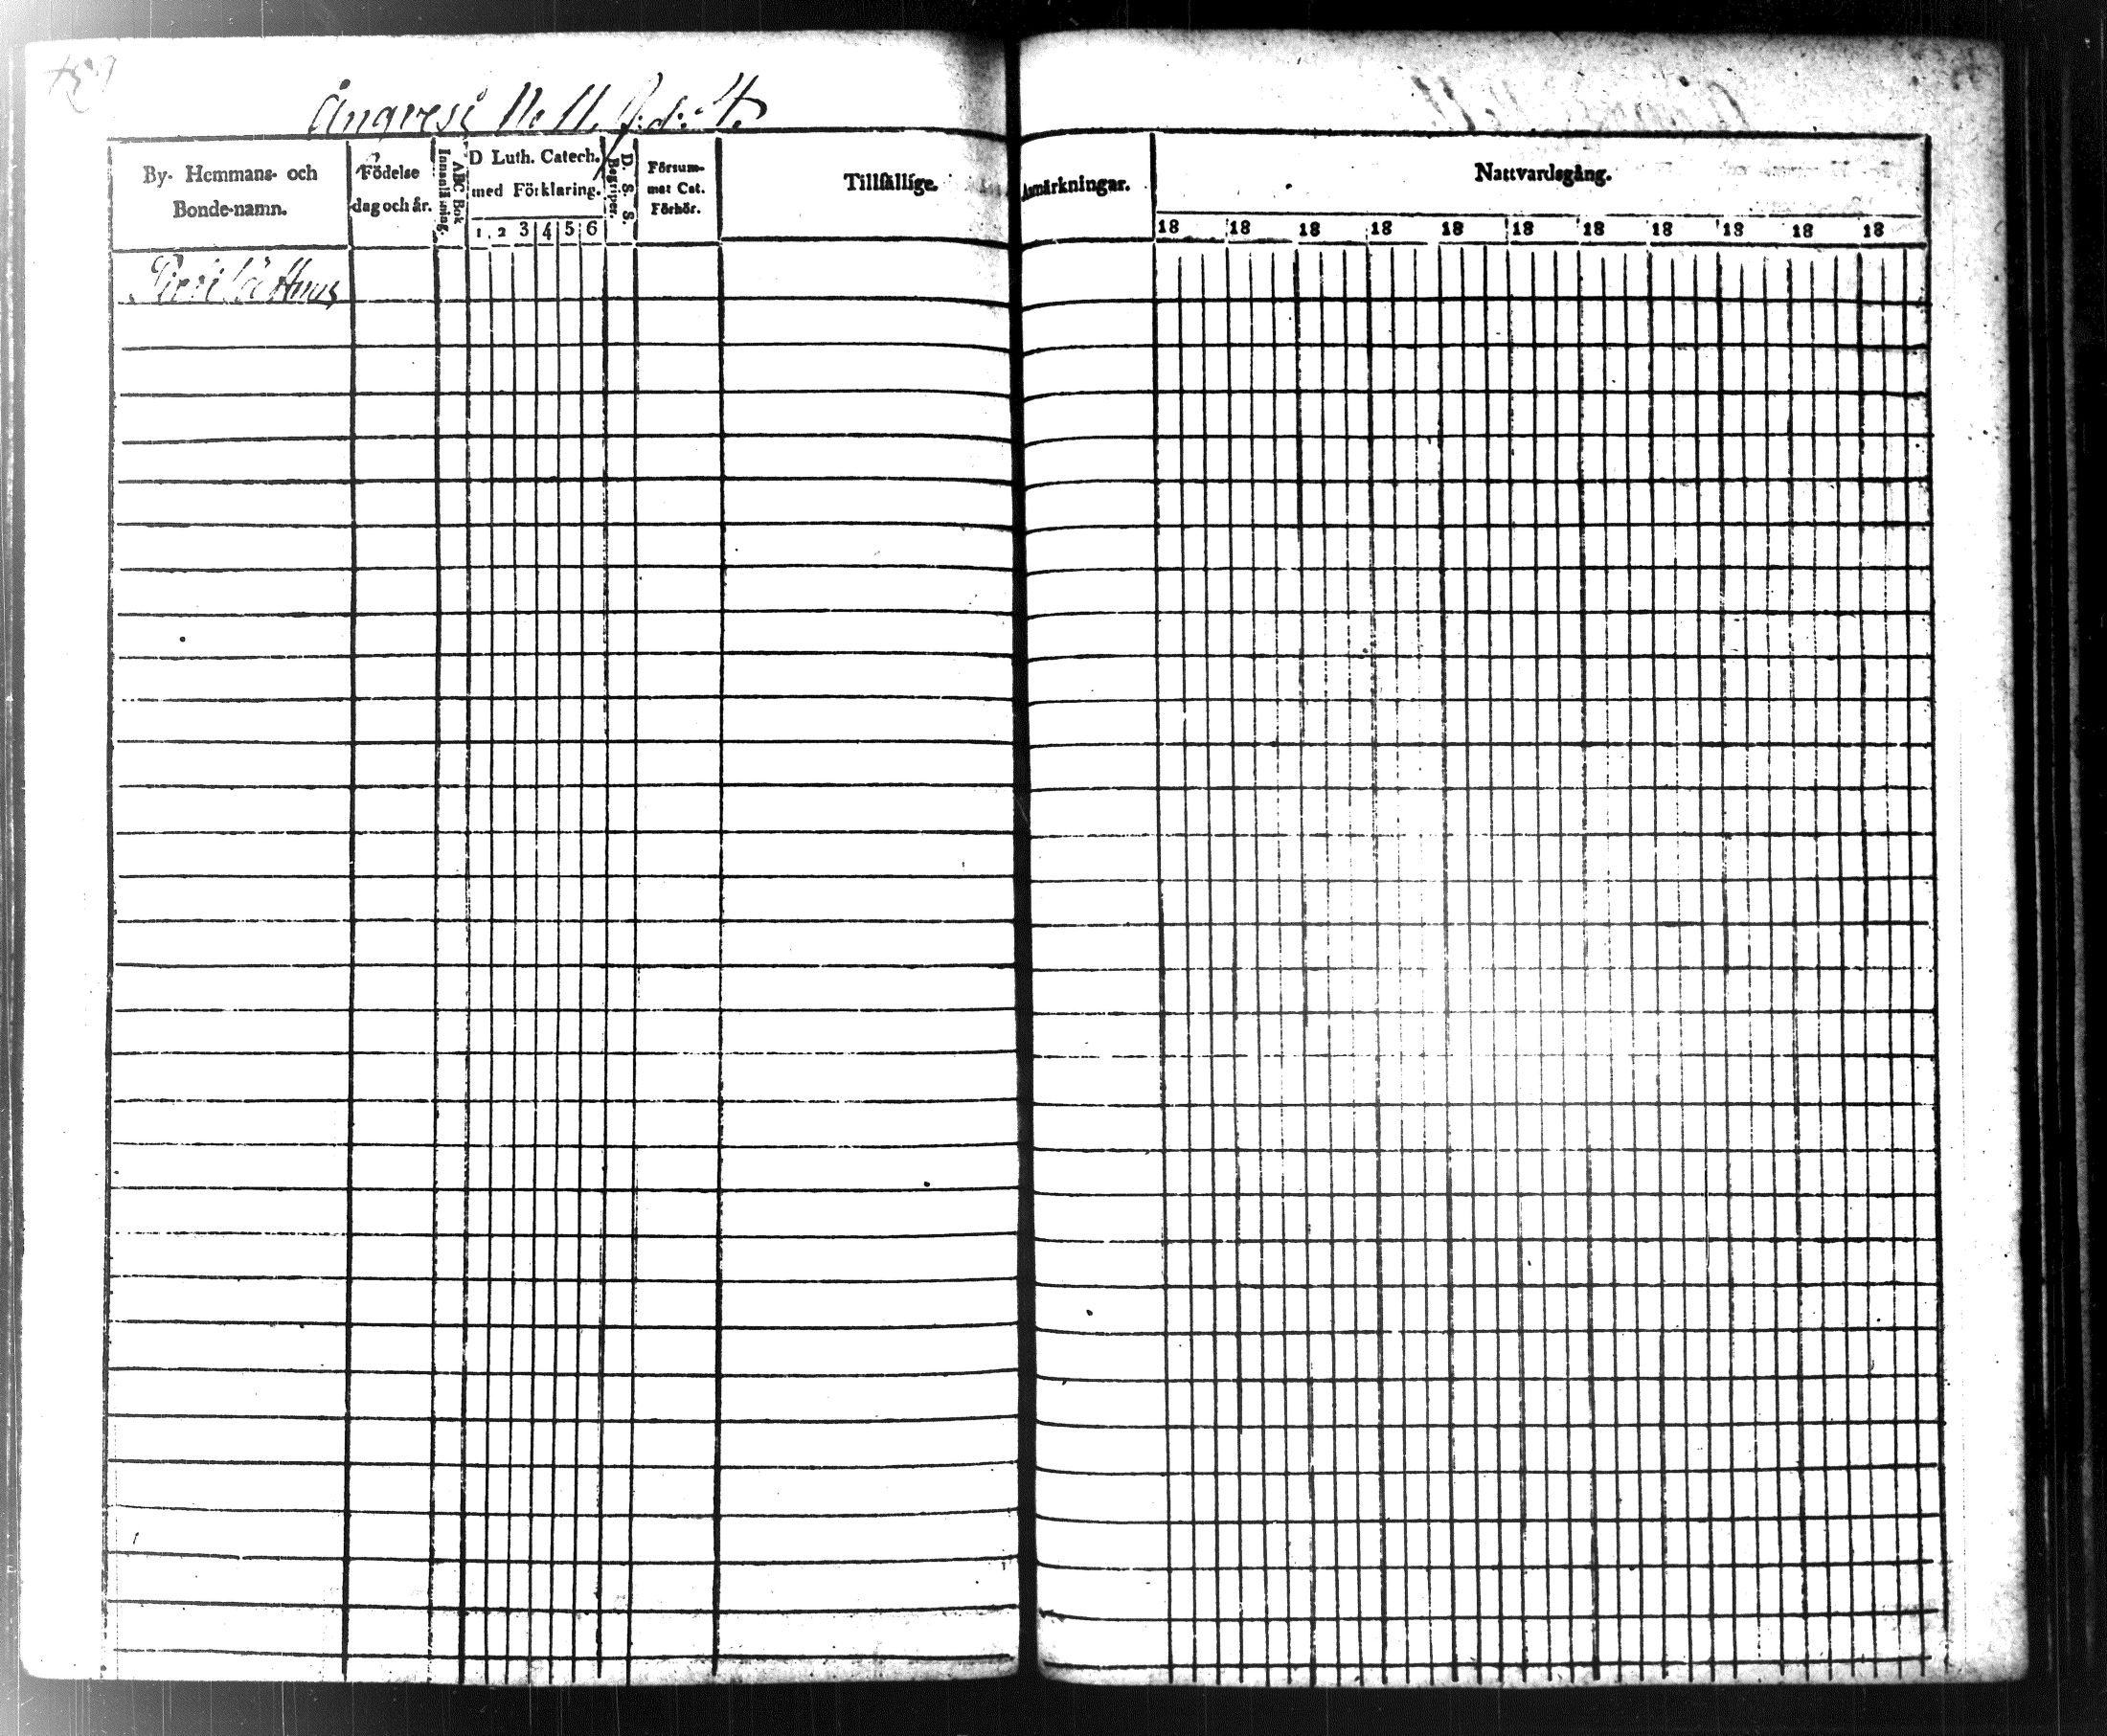 Ångvesi No 11.
By- Hemmans- och Bonde-namn.
Födelse dag och år.
Innanläsning.
ABC Bok
D Luth. Catech. med Förklaring.
1 2 3 4 5 6
D. S. S. Begriper.
Försummat Cat. Förhör.
Tillfällige
Anmärkningar.
Nattvardsgång.
18 18 18 18 18 18 18 18 18 18 18